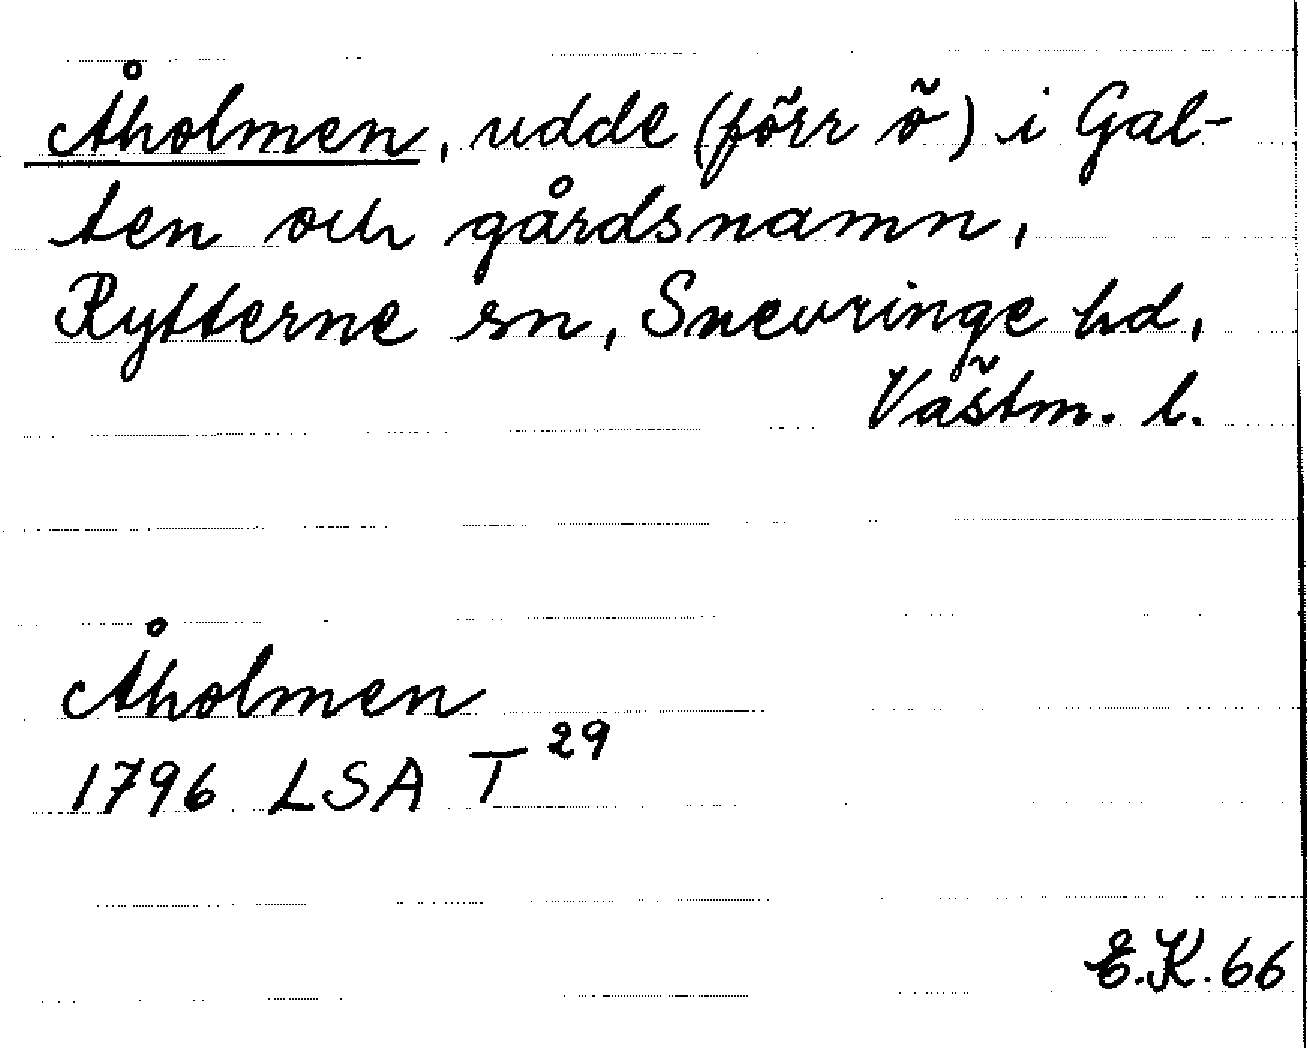 Åholmen, udde (förr ö) i Gal-
ten och gårdsnamn,
Rytterne sn, Snevringe hd,
Västm. l.
Åholmen
1796 LSA T 29
E.K. 66